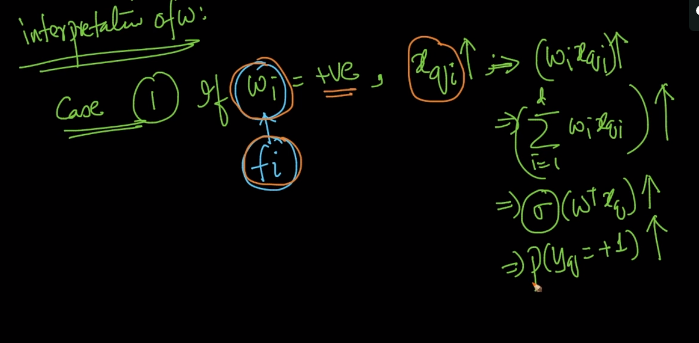 interpretation of w:
Case 1 If wi = +ve, xqi ↑ ⇒ (wi xqi) ↑
fi
⇒ (∑ i=1 d wi xqi) ↑
⇒ σ(wᵀxq) ↑
⇒ P(yq = +1) ↑